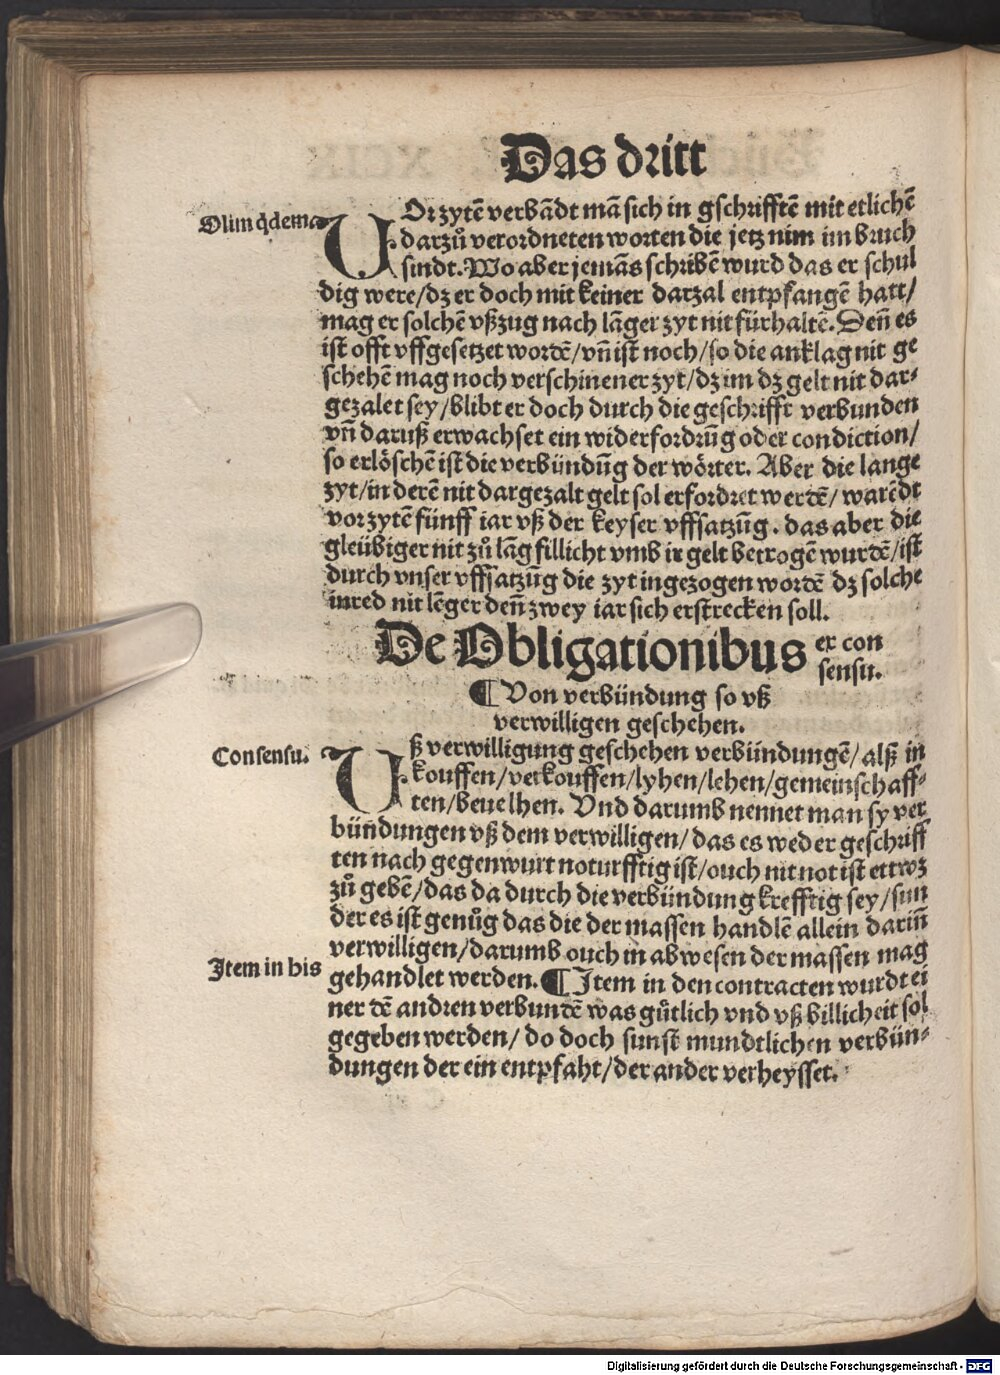 Das dritt
Olim qd̄emaʒ
VOr zytē verbādt mā sich in gschrifftē mit etlichē
darzů verordneten worten die jetz nim im bruch
sindt. Wo aber jemās schribē wurd das er schul
dig were/dz er doch mit keiner darzal entpfangē hatt/
mag er solchē vßzug nach lāger zyt nit fürhaltē. Deñ es
ist offt vffgesetzet wordē/vñ ist noch/so die anklag nit ge
schehē mag noch verschinener zyt/dz im dz gelt nit dar⸗
gezalet sey/blibt er doch durch die geschrifft verbunden
vñ daruß erwachset ein widerfordrūg oder condiction/
so erlöschē ist die verbündūg der wörter. Aber die lange
zyt/in derē nit dargezalt gelt sol erfordret werdē/warēdt
vor zytē fünff iar vß der keyser vffsatzūg. das aber die
gleübiger nit zů lāg fillicht vmb ir gelt betrogē wurdē/ist
durch vnser vffsatzūg die zyt ingezogen wordē dz solche
inred nit lēger deñ zwey iar sich erstrecken soll.
De Obligationibus ex con
sensu.
¶ Von verbündung so vß
verwilligen geschehen.
Consensu.
Vß verwilligung geschehen verbündungē/alß in
kouffen/verkouffen/lyhen/lehen/gemeinschaff⸗
ten/beuelhen. Vnd darumb nennet man sy ver
bündungen vß dem verwilligen/das es weder geschriff
ten nach gegenwurt noturfftig ist/ouch nit not ist ettwz
zů gebē/das da durch die verbündung krefftig sey/sun
der es ist genůg das die der massen handlē allein dariñ
verwilligen/darumb ouch in abwesen der massen mag
Item in his
gehandlet werden. ¶ Item in den contracten wurdt ei
ner dē andren verbundē was gůtlich vnd vß billicheit sol
gegeben werden/do doch sunst mundtlichen verbün⸗
dungen der ein entpfaht/der ander verheysset.
Digitalisierung gefördert durch die Deutsche Forschungsgemeinschaft - DFG